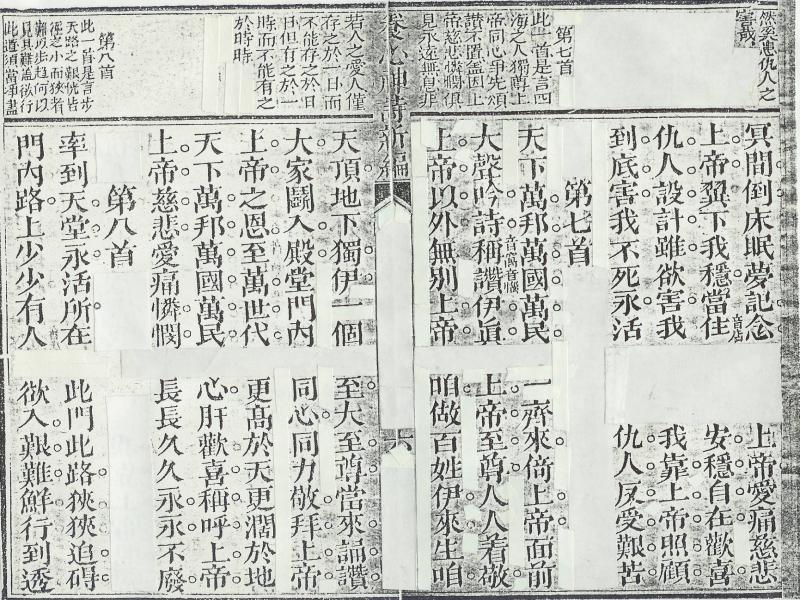 然奚患仇人之
害哉
第七首
此一首是言四
海之人獨尊上
帝同心爭先頌
讚不置盖因上
帝慈悲憐憫俱
見永遠無息非
冥間倒床眠夢記念 上帝愛痛慈悲
上帝翼下我穩當住 安穩自在歡喜
仇人設計雖欲害我 我靠上帝照顧
到底害我不死永活 仇人反受艱苦
第七首
天下萬邦萬國萬民 一齊來倚上帝面前
大聲吟詩稱讚伊眞 上帝至尊人人着敬
上帝以外無別上帝 咱做百姓伊來生咱
養心神詩新編 六
若人之愛人僅
存之於一日而
不能存之於日
日但有之於一
時而不能有之
於時時
第八首
此一首是言步
天路之艱恍皆
徑之小而狹者
難以步趨何以
見其難盖欲行
此道須當净盡
天頂地下獨伊一個 至大至尊當來誦讚
大家鬪入殿堂門內 同心同力敬拜上帝
上帝之恩至萬世代 更高於天更濶於地
天下萬邦萬國萬民 心肝歡喜稱呼上帝
上帝慈悲愛痛憐憫 長長久久永永不廢
第八首
率到天堂永活所在 此門此路狹狹追碍
門內路上少少有人 欲入艱難鮮行到透